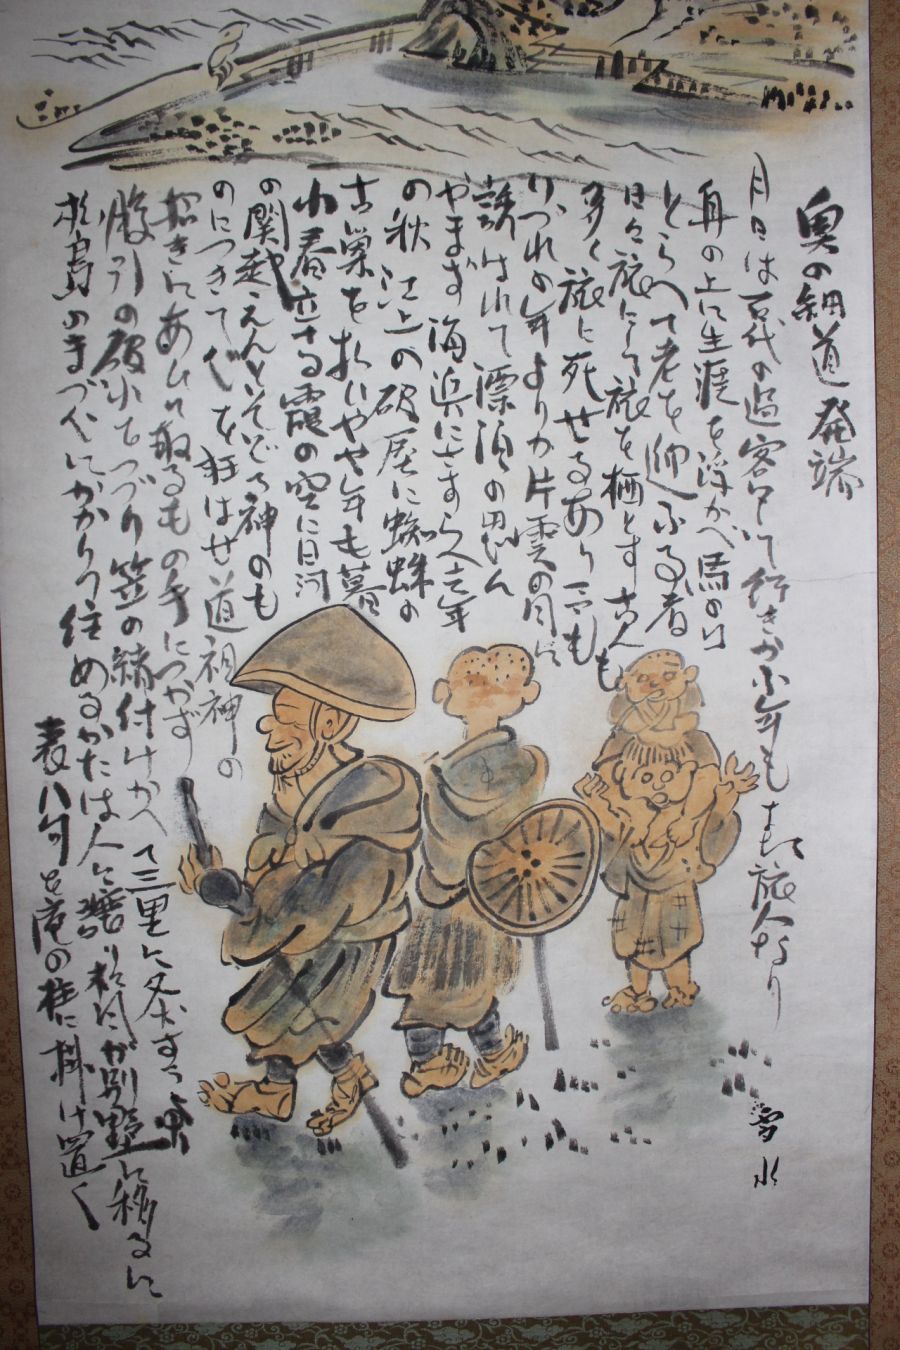 奥の細道 発端
月日は百代の過客にして行きかふ年もまた旅人なり
舟の上に生涯を浮かべ馬の口
とらへて老を迎ふる者
日々旅にして旅を栖とす古人も
多く旅に死せるあり予も
いづれの年よりか片雲の風に
誘はれて漂泊の思ひ
やまず海浜にさすらへ去年
の秋江上の破屋に蜘蛛の
古巣を払ひやや年も暮
春立てる霞の空に白河
の関越えんとそぞろ神のも
のにつきて心を狂はせ道祖神の
招きにあひて取るもの手につかず
股引の破れをつづり笠の緒付けかへて三里に灸すうる
松島の月まづ心にかかりて住めるかたは人に譲り杉風が別墅に移るに
表八句を庵の柱に掛け置く
雪水